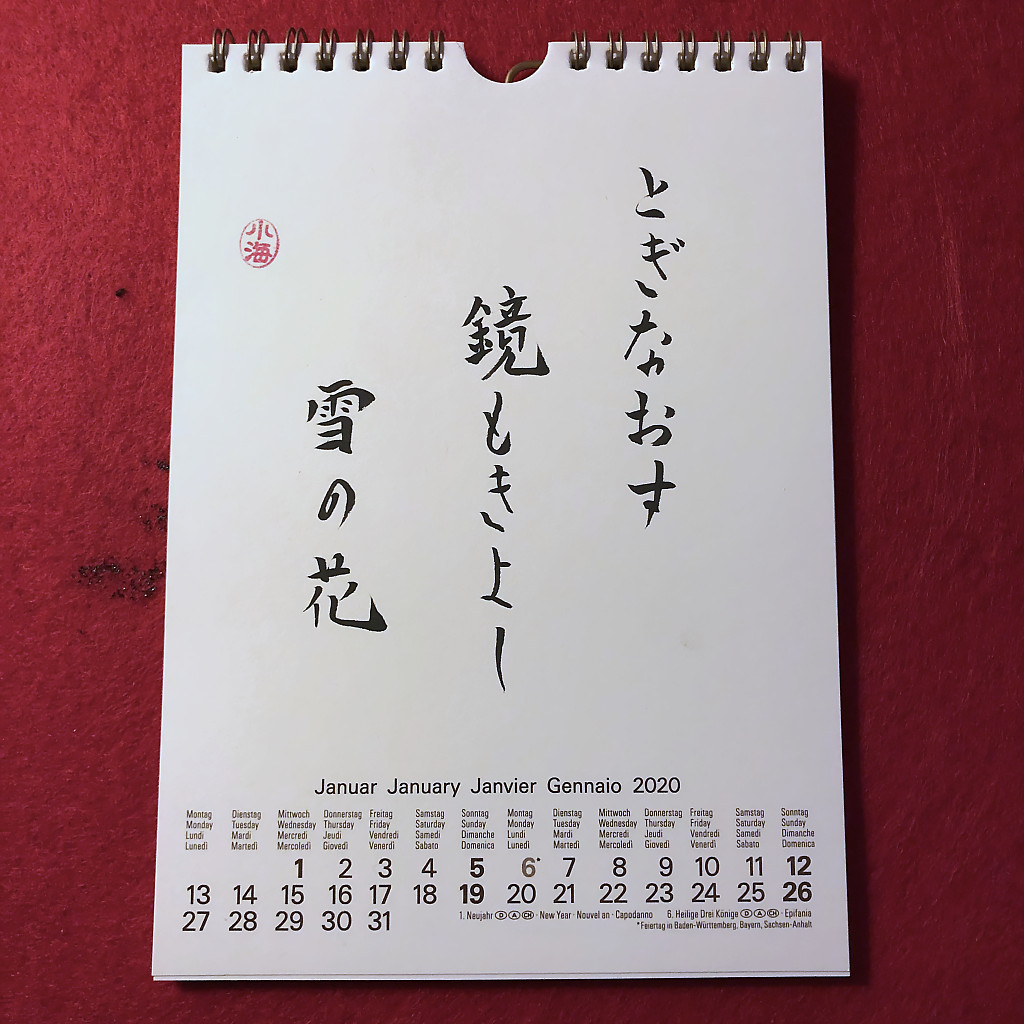 とぎなおす
鏡もきよし
雪の花
小海
Januar January Janvier Gennaio 2020
Montag Dienstag Mittwoch Donnerstag Freitag Samstag Sonntag Montag Dienstag Mittwoch Donnerstag Freitag Samstag Sonntag
Monday Tuesday Wednesday Thursday Friday Saturday Sunday Monday Tuesday Wednesday Thursday Friday Saturday Sunday
Lundi Mardi Mercredi Jeudi Vendredi Samedi Dimanche Lundi Mardi Mercredi Jeudi Vendredi Samedi Dimanche
Lunedì Martedì Mercoledì Giovedì Venerdì Sabato Domenica Lunedì Martedì Mercoledì Giovedì Venerdì Sabato Domenica
1 2 3 4 5 6* 7 8 9 10 11 12
13 14 15 16 17 18 19 20 21 22 23 24 25 26
27 28 29 30 31
1. Neujahr D A CH · New Year · Nouvel an · Capodanno 6. Heilige Drei Könige D A CH · Epifania
*Feiertag in Baden-Württemberg, Bayern, Sachsen-Anhalt